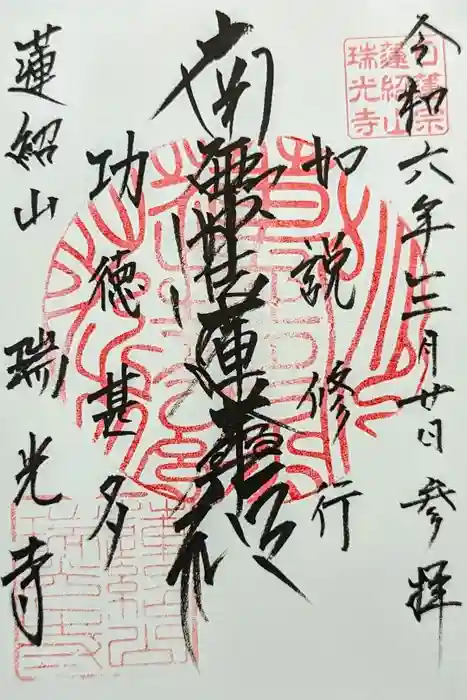 令和六年三月廿日 参拝
日蓮宗
蓮紹山
瑞光寺
如説修行
南無妙法蓮華経
功徳甚多
蓮紹山 瑞光寺